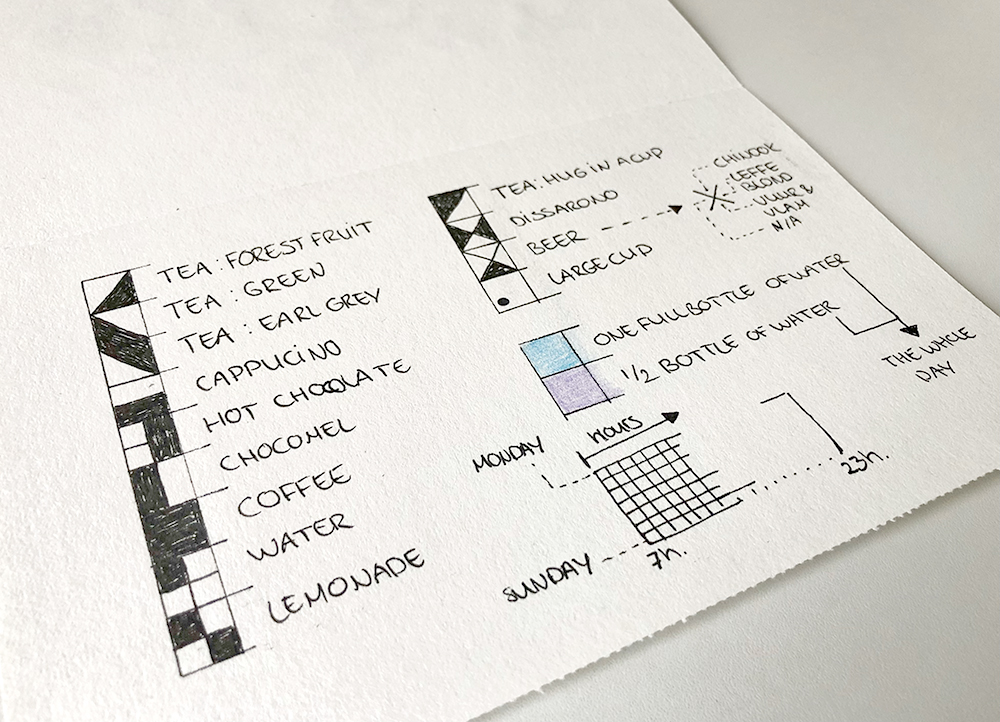 TEA: FOREST FRUIT
TEA: GREEN
TEA: EARL GREY
CAPPUCINO
HOT CHOCOLATE
CHOCOMEL
COFFEE
WATER
LEMONADE
TEA: HUG IN A CUP
DISSARONO
BEER
LARGE CUP
CHINOOK
LEFFE
BLOND
VUUR &
VLAM
N/A
ONE FULL BOTTLE OF WATER
1/2 BOTTLE OF WATER
THE WHOLE
DAY
HOURS
MONDAY
SUNDAY
7h.
23h.